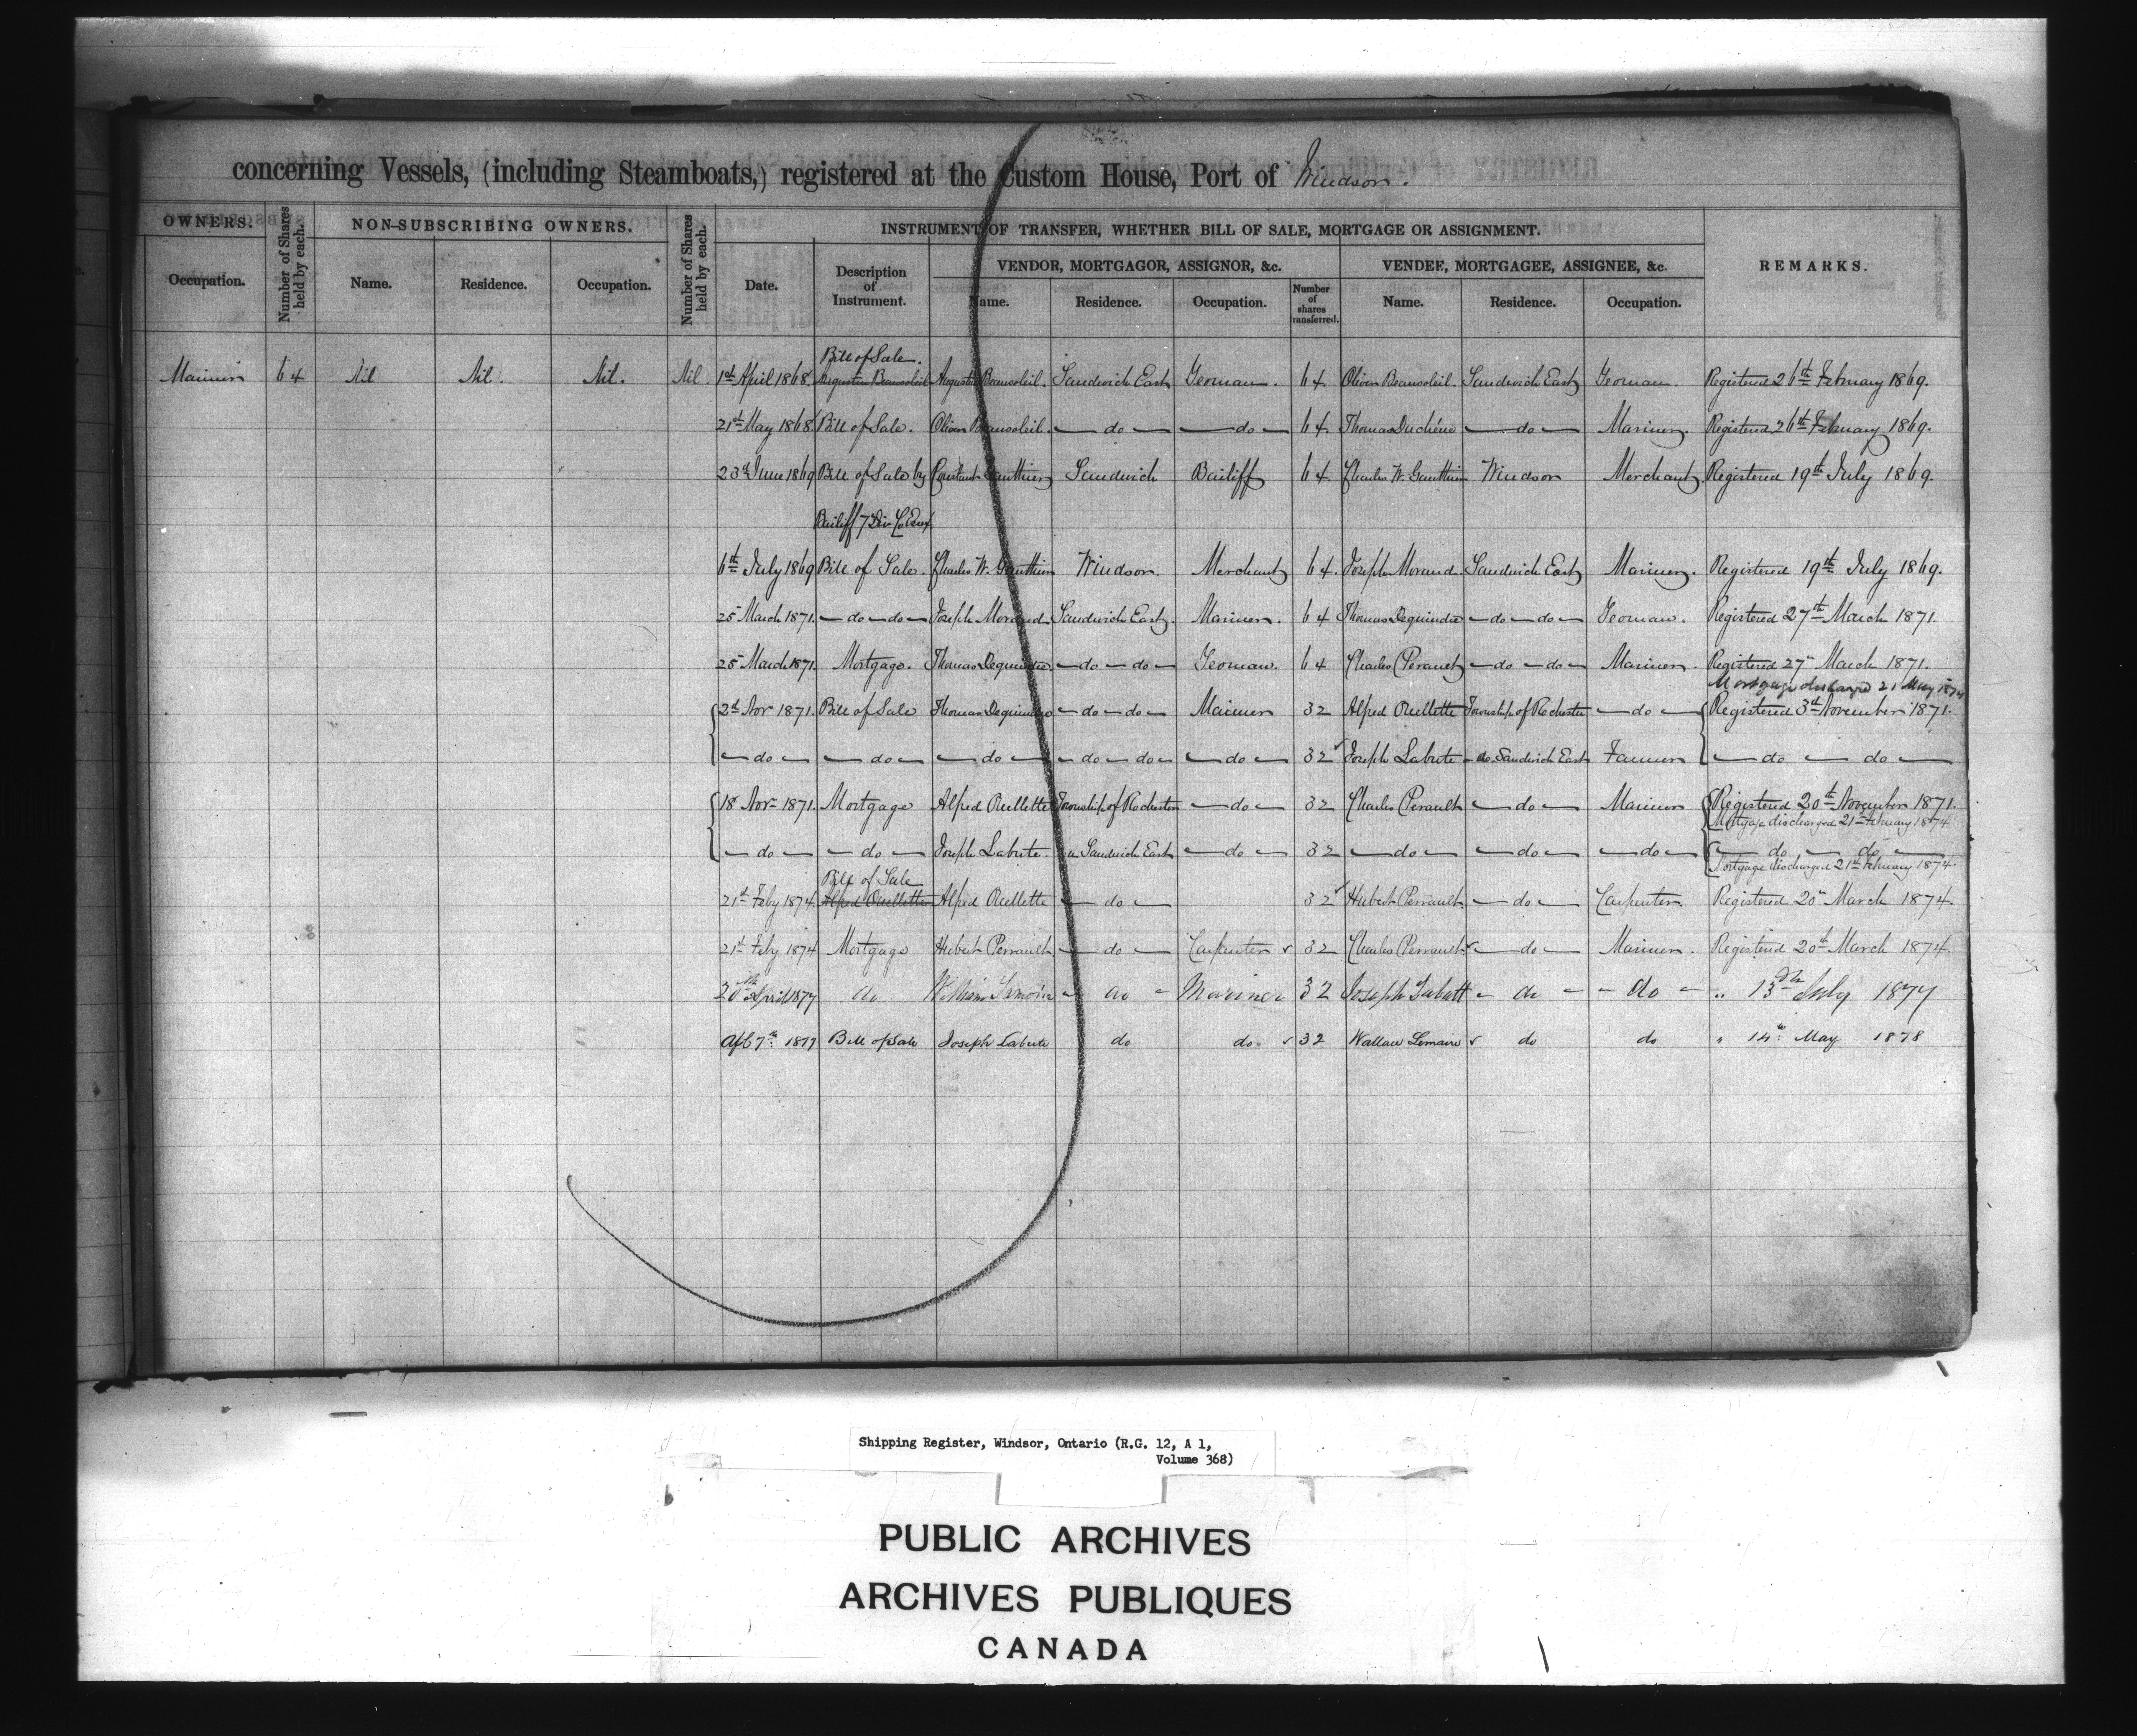 concerning Vessels, (including Steamboats,) registered at the Custom House, Port of Windsor.
OWNERS. Number of Shares held by each. NON-SUBSCRIBING OWNERS. Number of Shares held by each. INSTRUMENT OF TRANSFER, WHETHER BILL OF SALE, MORTGAGE OR ASSIGNMENT. REMARKS.
VENDOR, MORTGAGOR, ASSIGNOR, &c. VENDEE, MORTGAGEE, ASSIGNEE, &c.
Occupation. Name. Residence. Occupation. Date. Description of Instrument. Name. Residence. Occupation. Number of shares transferred. Name. Residence. Occupation.
Bill of Sale.
Mariner 64 Nil Nil. Nil. Nil. 1st April 1868. Augustin Beausoleil Augustin Beausoleil. Sandwich East Yeoman. 64. Oliver Beausoleil. Sandwich East Yeoman. Registered 26th February 1869.
21st May 1868. Bill of Sale. Oliver Beausoleil. — do — — do — 64. Thomas Duchéne — do — Mariner. Registered 26th February 1869.
23d June 1869 Bill of Sale by Gauthier Sandwich Bailiff 64 Charles W. Gauthier Windsor Merchant. Registered 19th July 1869.
Bailiff 7 Div Co Essex
6th July 1869 Bill of Sale. Charles W. Gauthier Windsor. Merchant 64. Joseph Morand. Sandwich East Mariner. Registered 19th July 1869.
25 March 1871. — do — do — Joseph Morand Sandwich East. Mariner. 64 Thomas Dequindre — do — do — Yeoman. Registered 27th March 1871.
25 March 1871. Mortgage. Thomas Dequindre. — do — do — Yeoman. 64 Charles Perault — do — do — Mariner. Registered 27th March 1871.
Mortgage discharged 21 May 1874
2d Nov 1871. Bill of Sale Thomas Dequindre — do — do — Mariner 32 Alfred Ouellette Township of Rochester — do — Registered 3d November 1871.
— do — — do — — do — — do — do — — do — 32 Joseph Labute do Sandwich East Farmer — do — do —
18 Nov 1871. Mortgage Alfred Ouellette Township of Rochester — do — 32 Charles Perault — do — Mariner Registered 20th November 1871.
Mortgage discharged 21st February 1874
— do — — do — Joseph Labute. Sandwich East — do — 32 — do — — do — — do — — do — do —
Mortgage discharged 21st February 1874.
Bill of Sale
21st Feby 1874. Alfred Ouellette Alfred Ouellette — do — 32 Hubert Perrault. — do — Carpenter. Registered 20th March 1874.
21st Feby 1874 Mortgage Hubert Perrault — do — Carpenter 32 Charles Perrault — do — Mariner. Registered 20th March 1874.
April 1877 do William - do - Mariner 32 Joseph Labutt - do - - do - " 13th July 1877
7th 1877 Bill of Sale Joseph Labute do do 32 Wallace Lemaire do do " 14th May 1878
Shipping Register, Windsor, Ontario (R.G. 12, A 1,
Volume 368)
PUBLIC ARCHIVES
ARCHIVES PUBLIQUES
CANADA